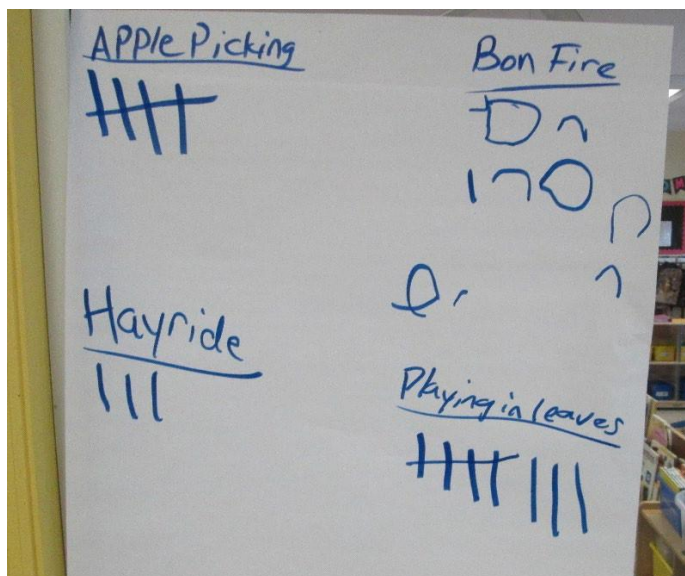 APPle Picking
Bon Fire
Hayride
Playing in leaves